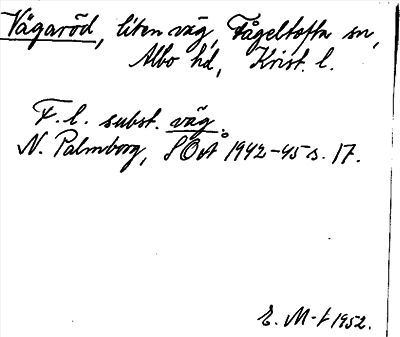 Vägaröd, liten väg, Fågeltofta sn,
Albo hd, Krist. l.
F. l. subst. väg.
N. Palmborg, SOÅ 1942-45 s. 17.
E. M-t 1952.